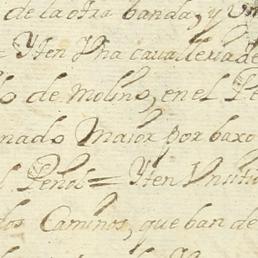 de la otra banda, y Vn
= Yten Vna cavalleria de
lo de Molino, en el Pe
nado Maior por baxo
l Peñol = Yten Vn siti
dos Caminos, que ban de